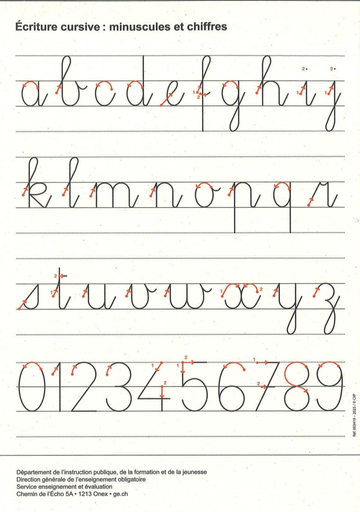 Écriture cursive : minuscules et chiffres
a b c d e f g h i j
k l m n o p q r
s t u v w x y z
0 1 2 3 4 5 6 7 8 9
Département de l'instruction publique, de la formation et de la jeunesse
Direction générale de l'enseignement obligatoire
Service enseignement et évaluation
Chemin de l'Écho 5A • 1213 Onex • ge.ch